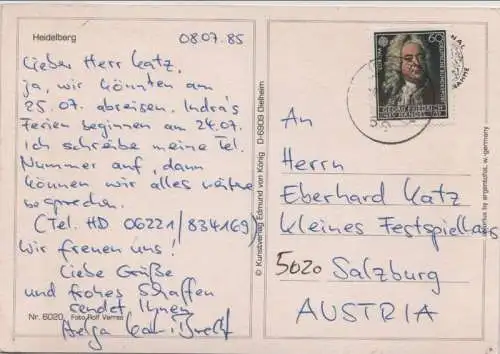 Heidelberg
08.07.85
Lieber Herr Katz,
ja, wir könnten am
25.07. abreisen. Indra's
Ferien beginnen am 24.07.
Ich schreibe meine Tel.
Nummer auf, dann
können wir alles weitere
besprechen.
(Tel. HD 06221/834169)
Wir freuen uns!
Liebe Grüße
und frohes Schaffen
sendet Ihnen
Helga
Nr. 6020 Foto Rolf
© Kunstverlag Edmund von König D-6909 Dielheim
60
DEUTSCHE BUNDESPOST
GEORG FRIEDRICH
HÄNDEL
An
Herrn
Eberhard Katz
Kleines Festspielhaus
5020 Salzburg
AUSTRIA
w. germany